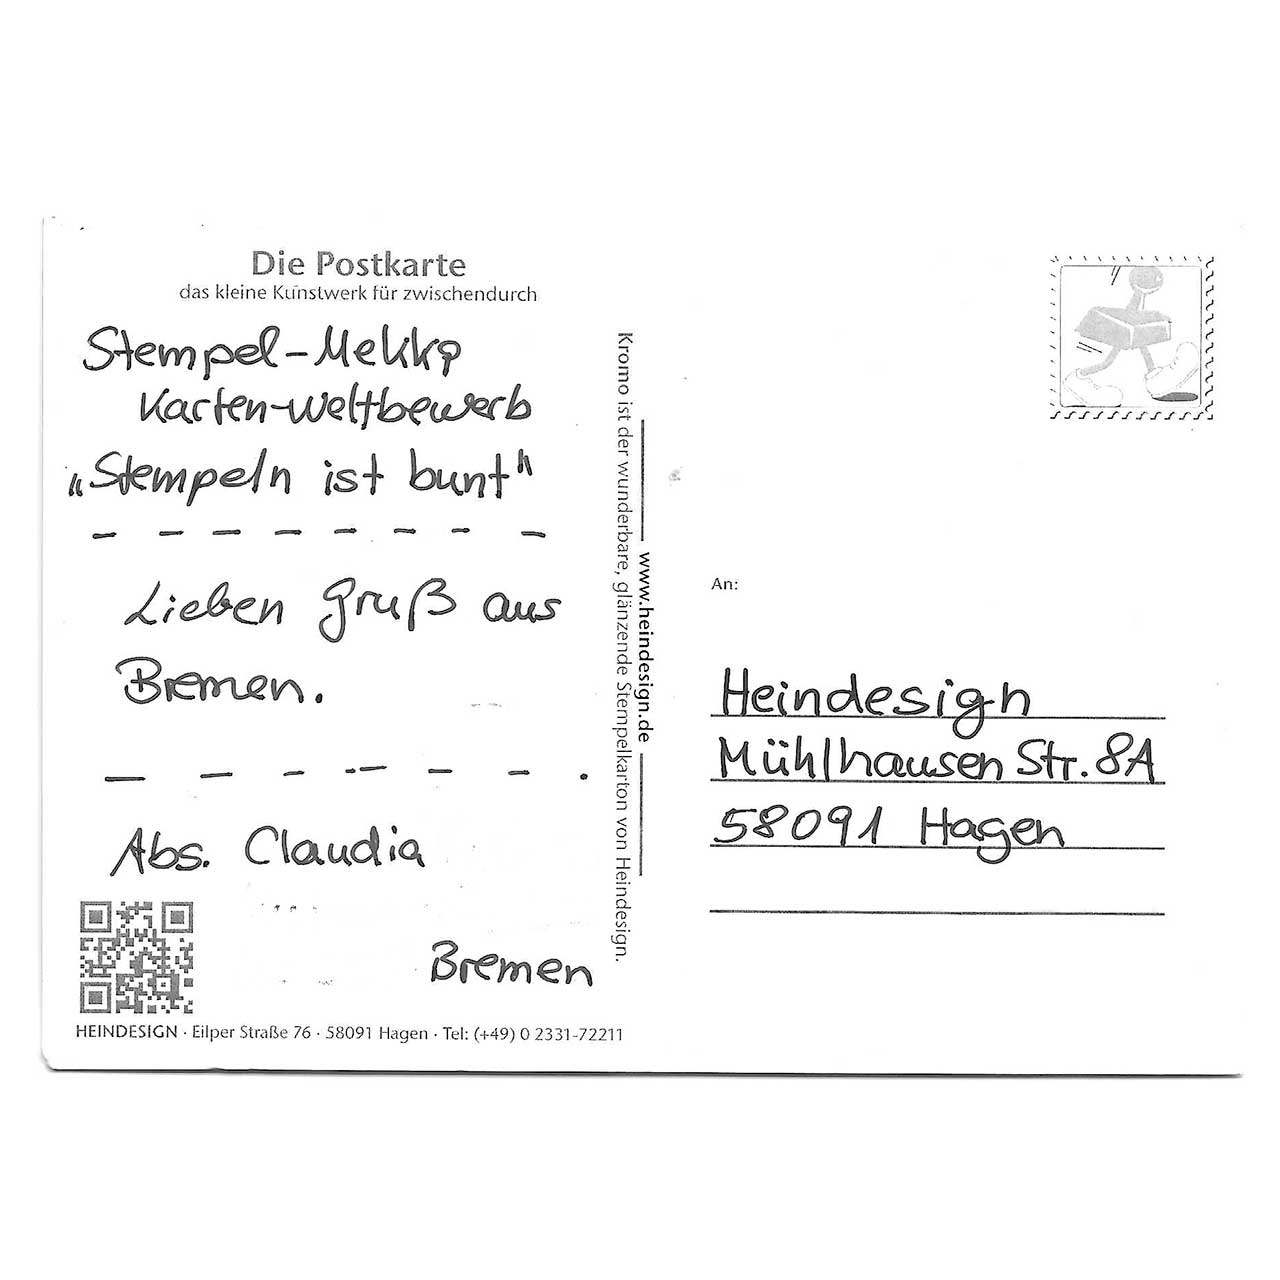 Die Postkarte
das kleine Kunstwerk für zwischendurch
Stempel-Mekka
Karten-Weltbewerb
„Stempeln ist bunt"
Lieben Gruß aus
Bremen.
Abs. Claudia
Bremen
HEINDESIGN · Eilper Straße 76 · 58091 Hagen · Tel: (+49) 0 2331-72211
www.heindesign.de
Kromo ist der wunderbare, glänzende Stempelkarton von Heindesign.
An:
Heindesign
Mühlhausen Str. 8A
58091 Hagen